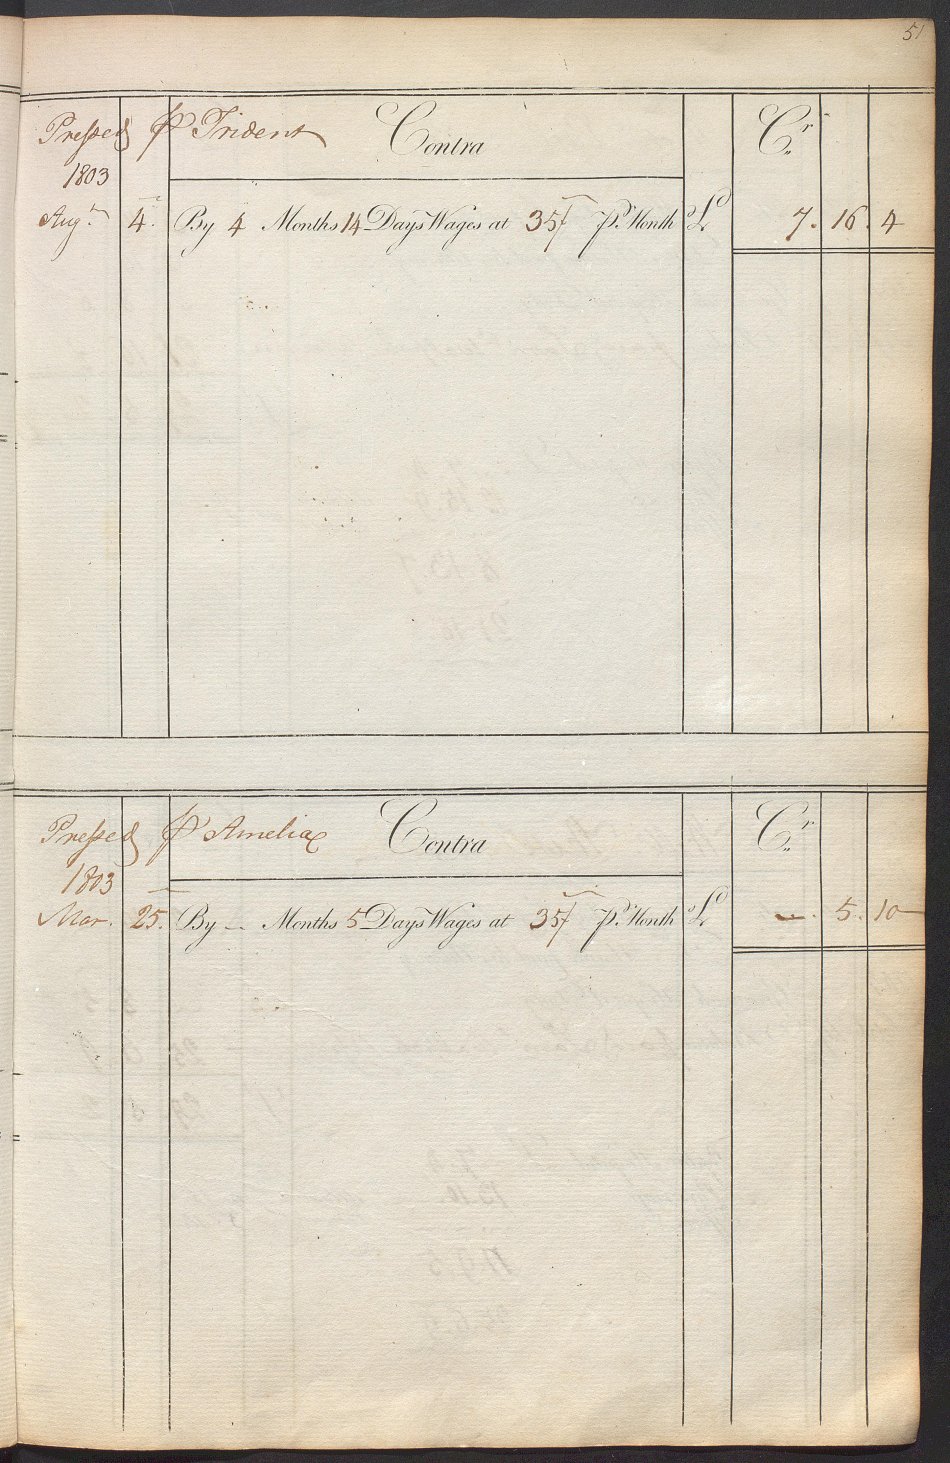 51
Pressed p Trident Contra Cr
1803
Augt 4. By 4 Months 14 Days Wages at 35/ p. Month £ 7. 16. 4
Pressed p Amelia Contra Cr
1803
Mar. 25. By — Months 5 Days Wages at 35/ p. Month £ —. 5. 10